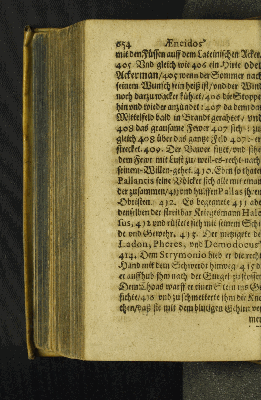 654 Æneidos
mit den Füssen auff dem Lateinischen Acker.
405. Und gleich wie 406 ein Hirte oder
Ackerman/405 wenn der Sommer nach
seinem Wunsch sein heiß ist/ und der Wind
noch darzu wacker kühlet/406 die Stoppel
hin und wieder anzündet: 407 da denn das
Mittelfeld bald in Brandt gerahtet/ und
408 das grausame Fewer 407 sich
gleich 408 über das gantze Feld 407
strecket. 409. Der Bawer sitzt/ und sihet
dem Fewr mit Lust zu/ weil es recht nach
seinem Willen gehet. 410. Eben so thaten
Pallantis seine Völcker sich alle mit einan-
der zusammen/ 411 und hülffen Pallas ihrem
Obristen. 412. Es begegnete 411 aber
denselben der streitbar Kriegesmann Hale-
sus, 412 und rüstete sich mit seinem Schil-
de und Gewehr. 413. Der metzigete
Ladon, Pheres, und Demodocus
414. Dem Strymonio hieb er die rechte
Hand mit dem Schwerdt hinweg/ 415 da
er auffhub ihn nach der Gurgel zu stossen
Dem Thoas warff er einen Stein ins Ge-
sichte/ 416 und zuschmetterte ihm die Kno-
chen/ daß sie mit dem blutigen Gehirn ver-
men